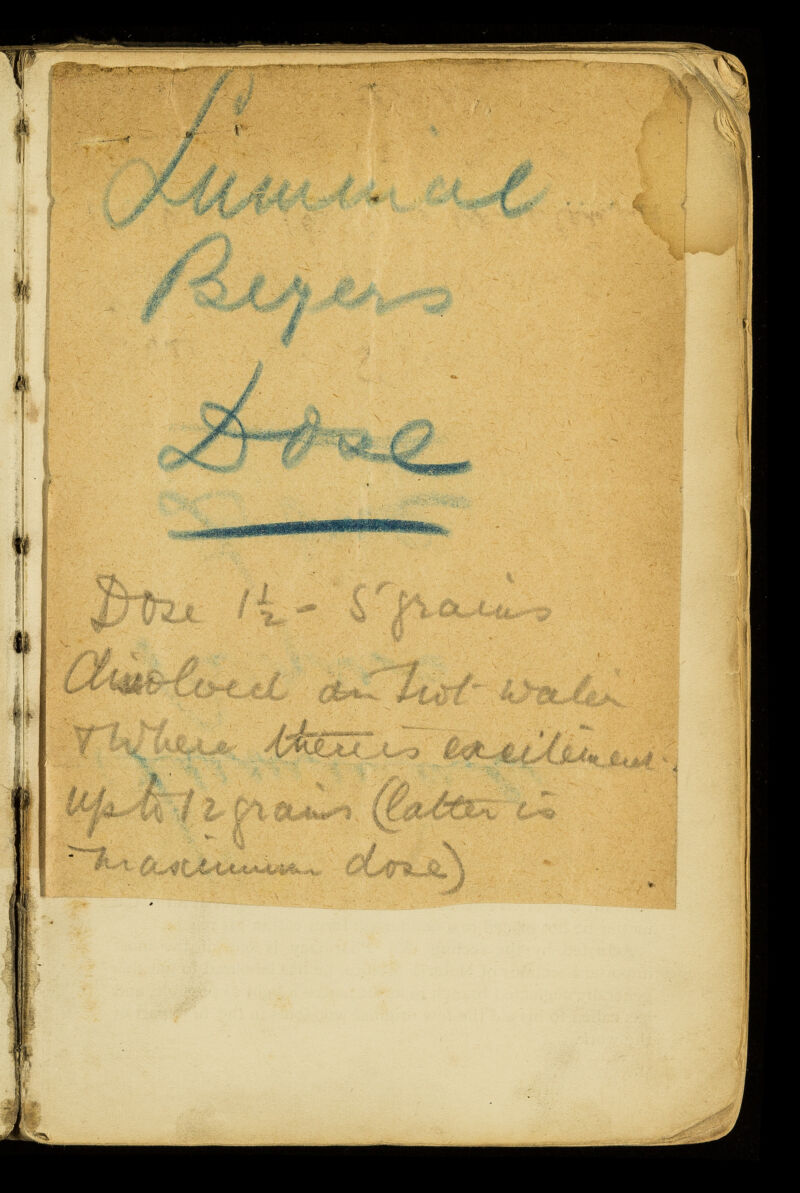 Luminal
Beyers
Dose
Dose 1½ - 5 grains
dissolved in hot water
& Where there is excitement
up to 12 grains (latter is
maximum dose)